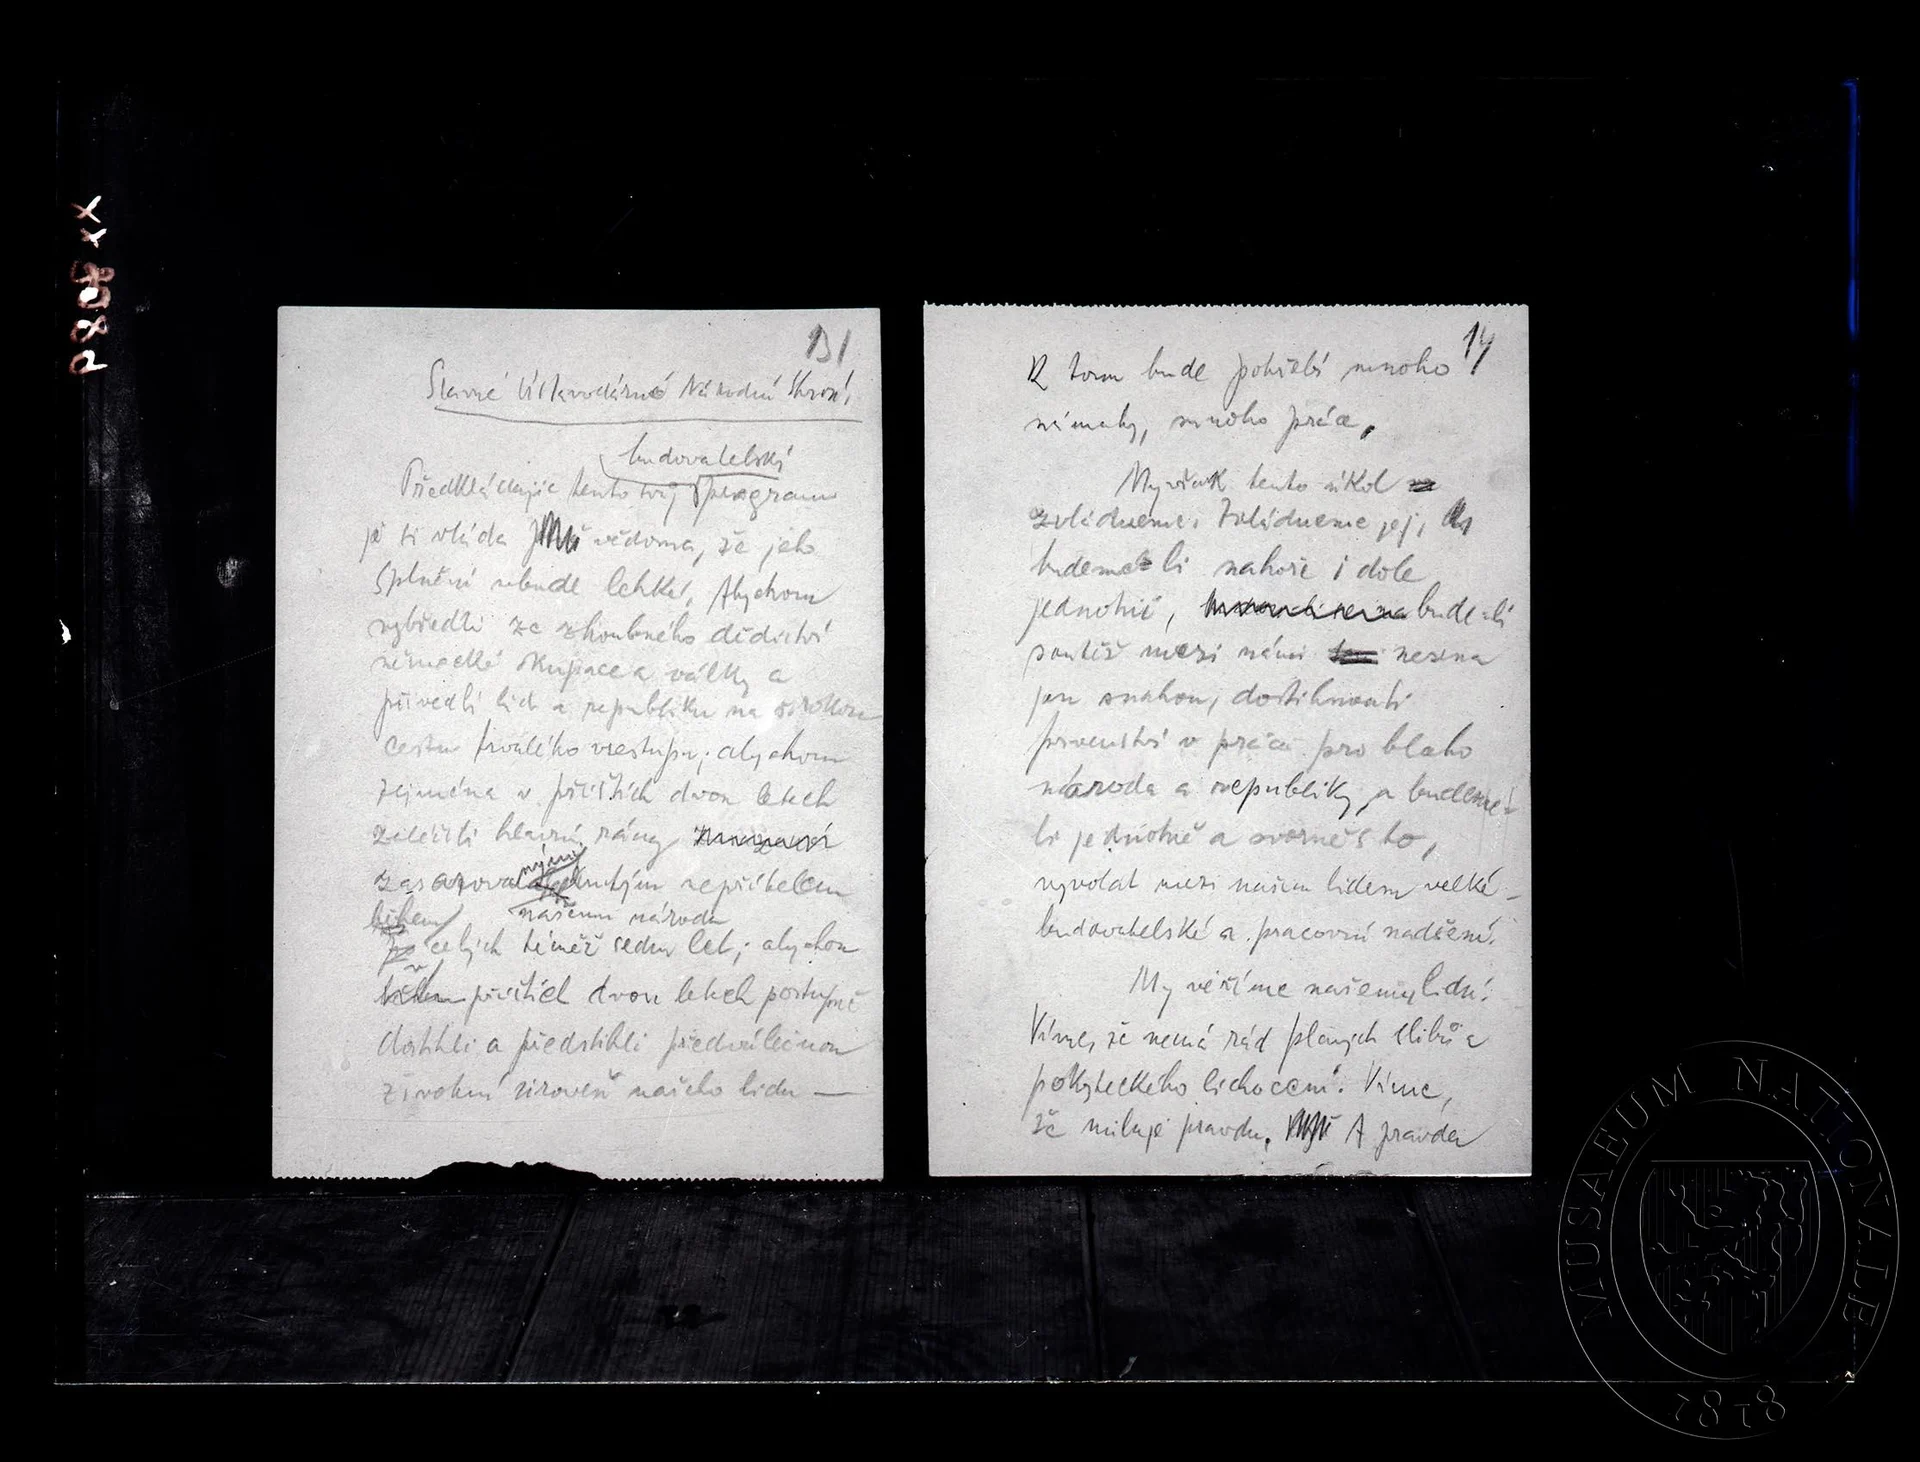 13
Slavné Ústavodárné Národní Shrom.
budovatelský
Předkládajíc tento svůj program
je si vláda vědoma, že jeho
splnění nebude lehké. Abychom
vybředli ze zhoubného dědictví
německé okupace a války a
přivedli lid a republiku na širokou
cestu trvalého vzestupu; abychom
zejména v příštích dvou letech
zaléčili hlavní rány
zasazované krutým nepřítelem
našemu národu
během
celých téměř sedm let; abychom
v příštích dvou letech postupně
dostihli a předstihli předválečnou
životní úroveň našeho lidu —
14
K tomu bude potřebí mnoho
námahy, mnoho práce.
My však tento úkol
zvládneme. Zvládneme jej,
budeme-li nahoře i dole
jednotni, bude-li
soutěž mezi námi nesena
jen snahou, dostihnouti
prvenství v práci pro blaho
národa a republiky, a budeme-
li jednotně a svorně s to,
vyvolat mezi naším lidem velké
budovatelské a pracovní nadšení.
My věříme našemu lidu!
Víme, že nemá rád planých slibů a
pokryteckého lichocení. Víme,
že miluje pravdu. A pravda
MUSAEUM NATIONALE
1818